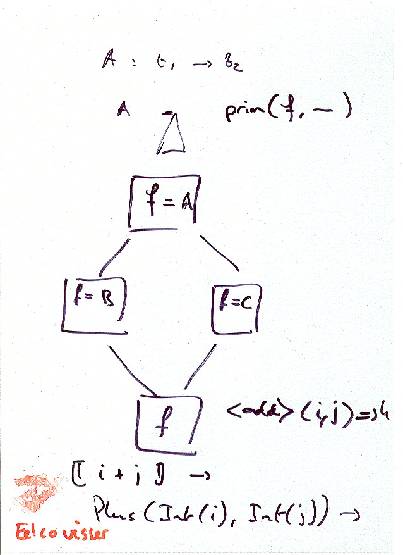 A : t₁ → t₂
A prim(f, —)
f = A
f = B f = C
f
<add> (i,j) => k
⟦ i + j ⟧ →
Plus (Int(i), Int(j)) →
Eelco Visser